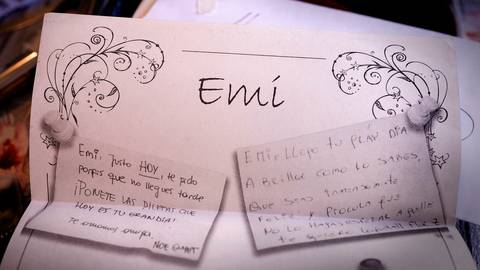 Emi
Emi, justo HOY, te pido
porfas que no llegues tarde
¡PONETE LAS PILITAS QUE
HOY ES TU GRAN DIA!
Te amamos amiga.
NOE
EMI: LLEGO TU GRAN DIA
A BRILLAR COMO LO SABES
QUE SEAS INMENSAMENTE
FELIZ Y
NO LO HAGAS
te